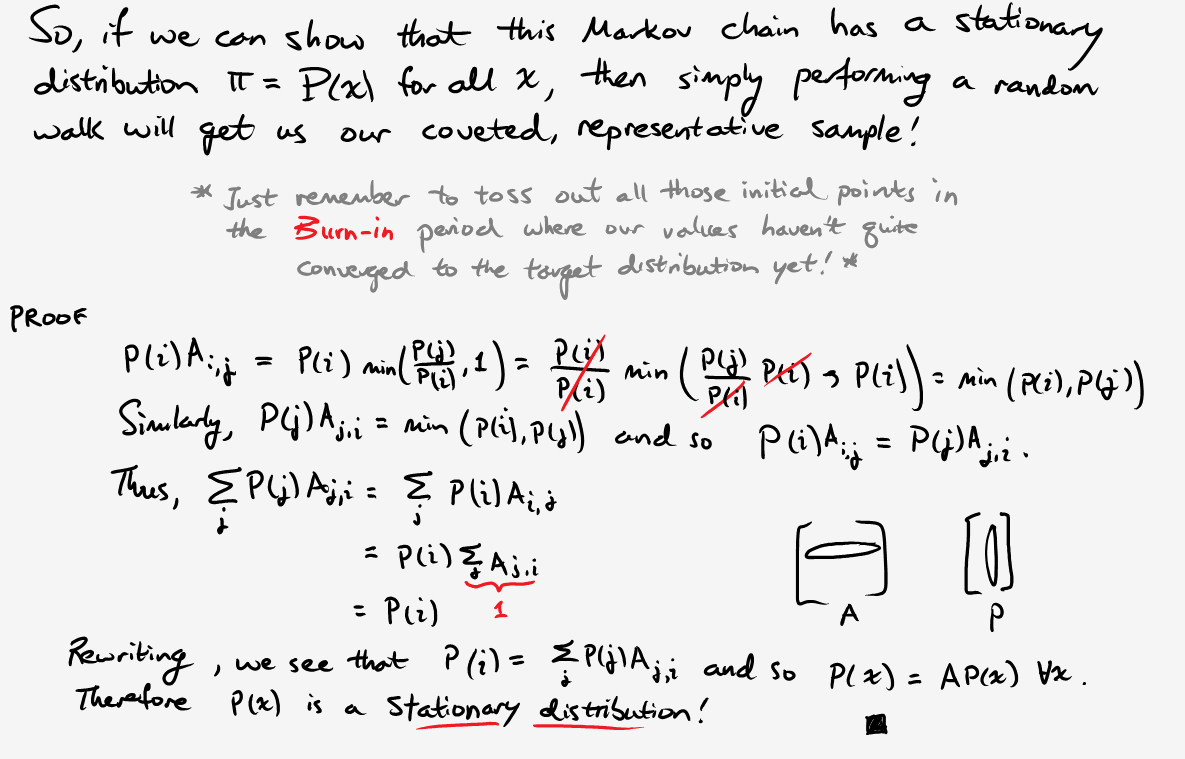 So, if we can show that this Markov chain has a stationary
distribution π = P(x) for all x, then simply performing a random
walk will get us our coveted, representative sample!
* Just remember to toss out all those initial points in
the Burn-in period where our values haven't quite
converged to the target distribution yet! *
PROOF
P(i)A_{i,j} = P(i) min(P(j)/P(i), 1) = P(i)/P(i) min(P(j)/P(i) P(i), P(i)) = min(P(i), P(j))
Similarly, P(j)A_{j,i} = min(P(i), P(j)) and so P(i)A_{i,j} = P(j)A_{j,i}.
Thus, Σ_j P(j)A_{j,i} = Σ_j P(i)A_{i,j}
= P(i) Σ_j A_{j,i}
1
= P(i)
A P
Rewriting, we see that P(i) = Σ_j P(j)A_{j,i} and so P(x) = AP(x) ∀x.
Therefore P(x) is a stationary distribution!